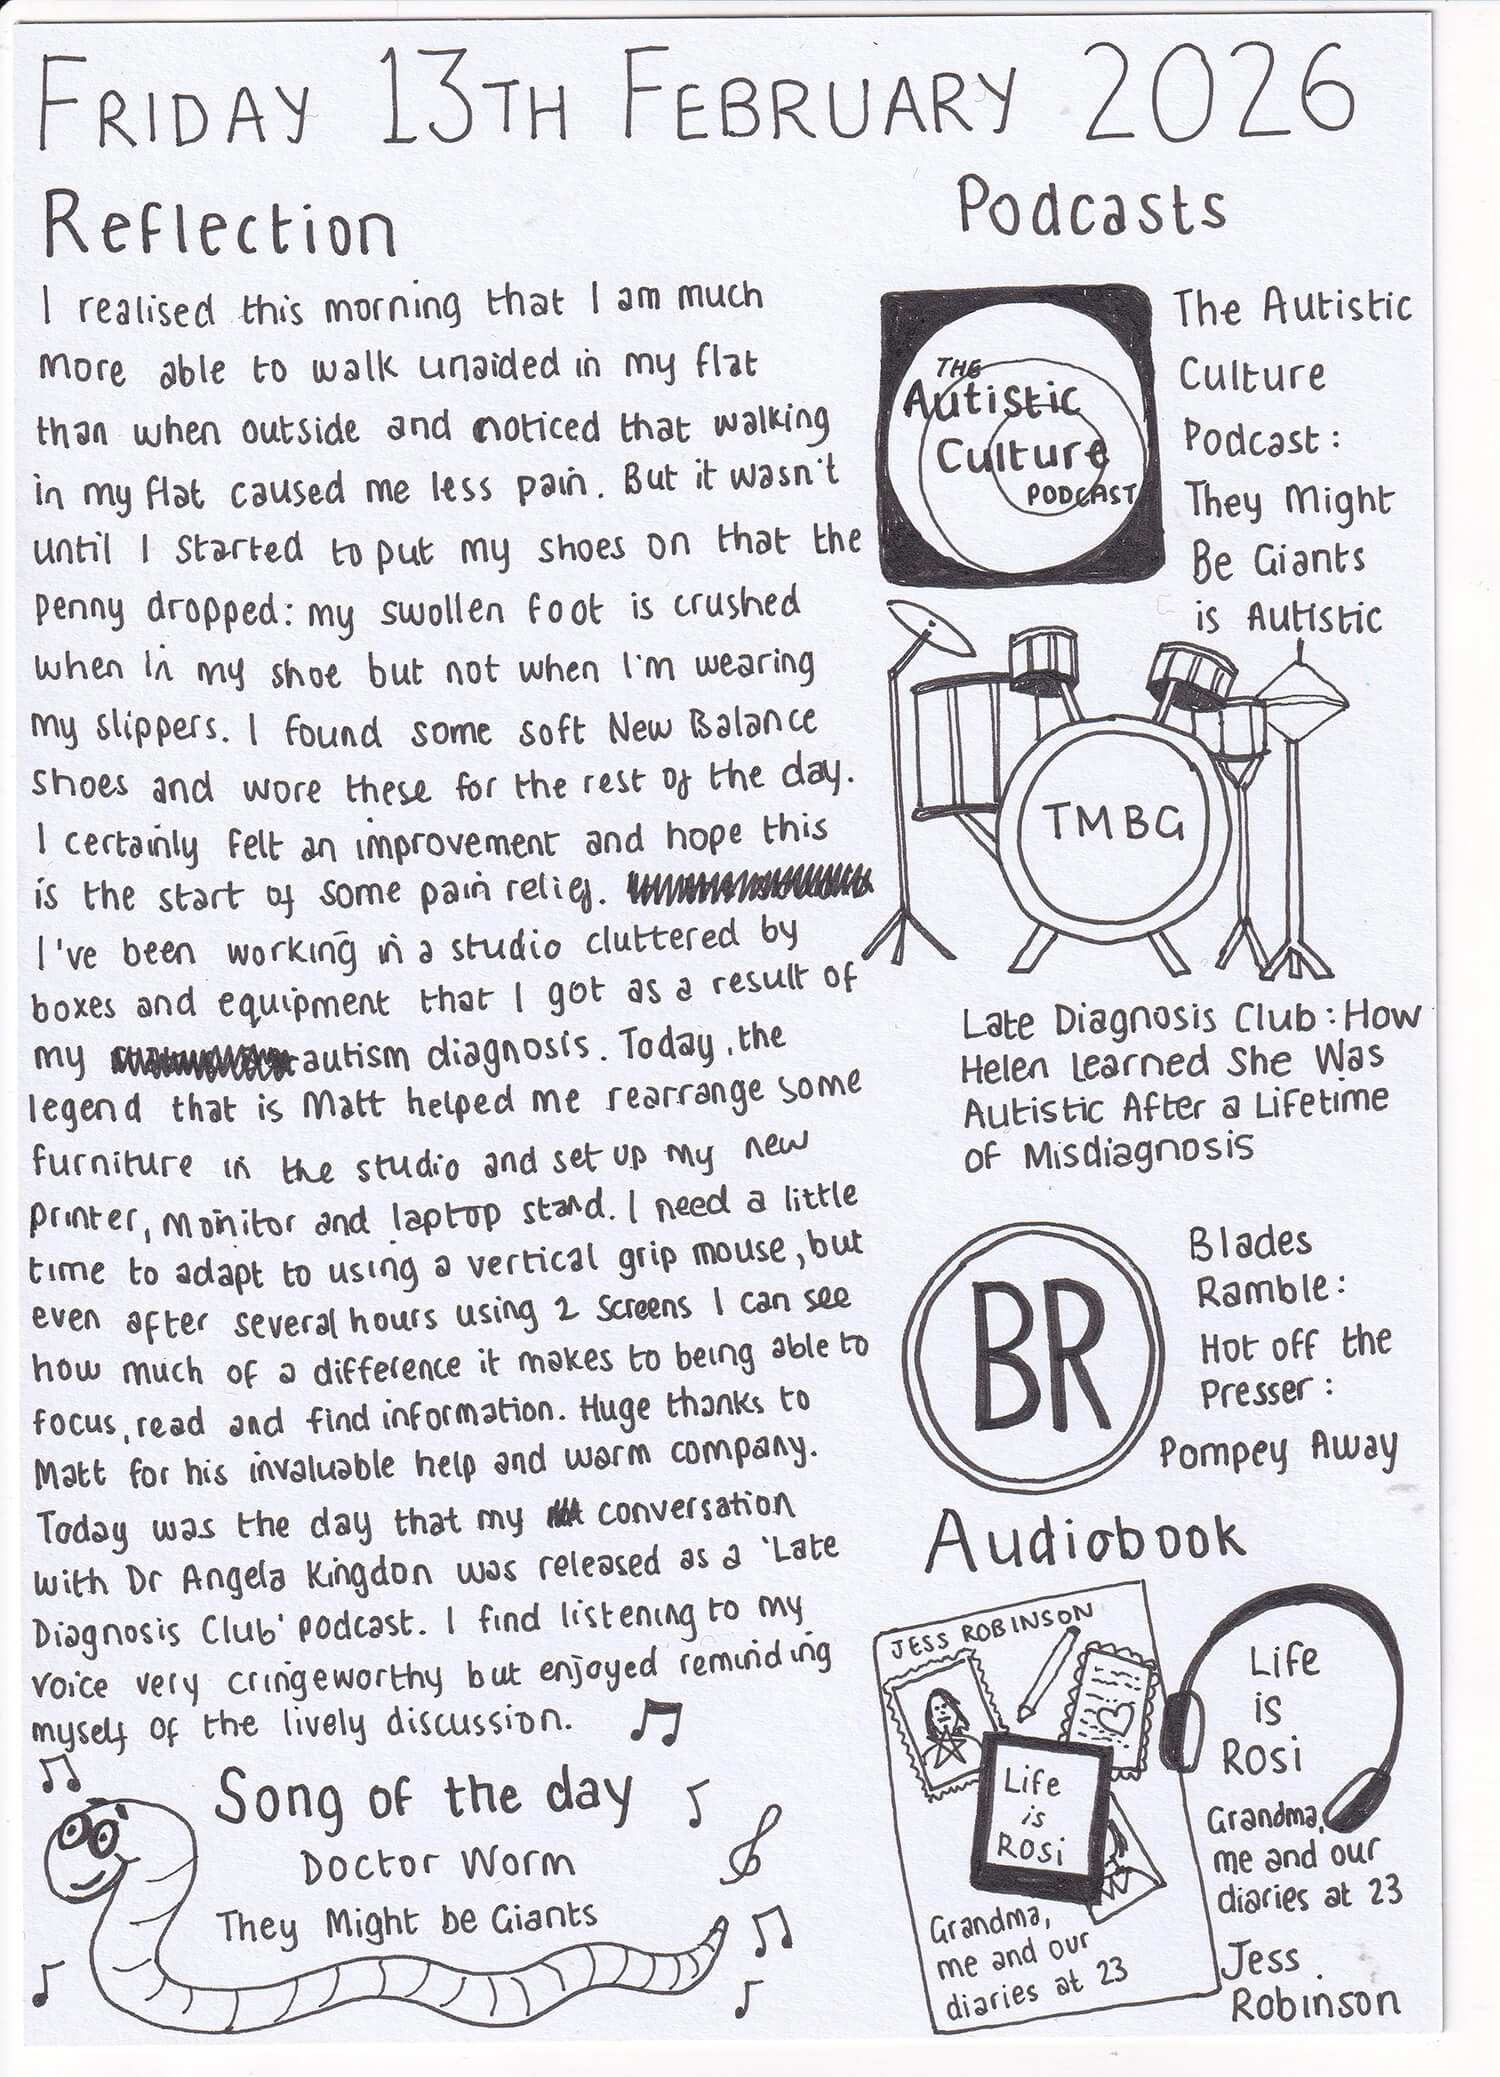 FRIDAY 13TH FEBRUARY 2026
Reflection
I realised this morning that I am much
more able to walk unaided in my flat
than when outside and noticed that walking
in my flat caused me less pain. But it wasn't
until I started to put my shoes on that the
penny dropped: my swollen foot is crushed
when in my shoe but not when I'm wearing
my slippers. I found some soft New Balance
shoes and wore these for the rest of the day.
I certainly felt an improvement and hope this
is the start of some pain relief.
I've been working in a studio cluttered by
boxes and equipment that I got as a result of
my autism diagnosis. Today, the
legend that is Matt helped me rearrange some
furniture in the studio and set up my new
printer, monitor and laptop stand. I need a little
time to adapt to using a vertical grip mouse, but
even after several hours using 2 screens I can see
how much of a difference it makes to being able to
focus, read and find information. Huge thanks to
Matt for his invaluable help and warm company.
Today was the day that my conversation
with Dr Angela Kingdon was released as a 'Late
Diagnosis Club' podcast. I find listening to my
voice very cringeworthy but enjoyed reminding
myself of the lively discussion.
Song of the day
Doctor Worm
They Might be Giants
Podcasts
THE
Autistic
Culture
PODCAST
The Autistic
Culture
Podcast:
They Might
Be Giants
is Autistic
TMBG
Late Diagnosis Club: How
Helen Learned She Was
Autistic After a Lifetime
of Misdiagnosis
BR
Blades
Ramble:
Hot off the
Presser:
Pompey Away
Audiobook
JESS ROBINSON
Life
is
Rosi
Grandma,
me and our
diaries at 23
Life
is
Rosi
Grandma,
me and our
diaries at 23
Jess
Robinson